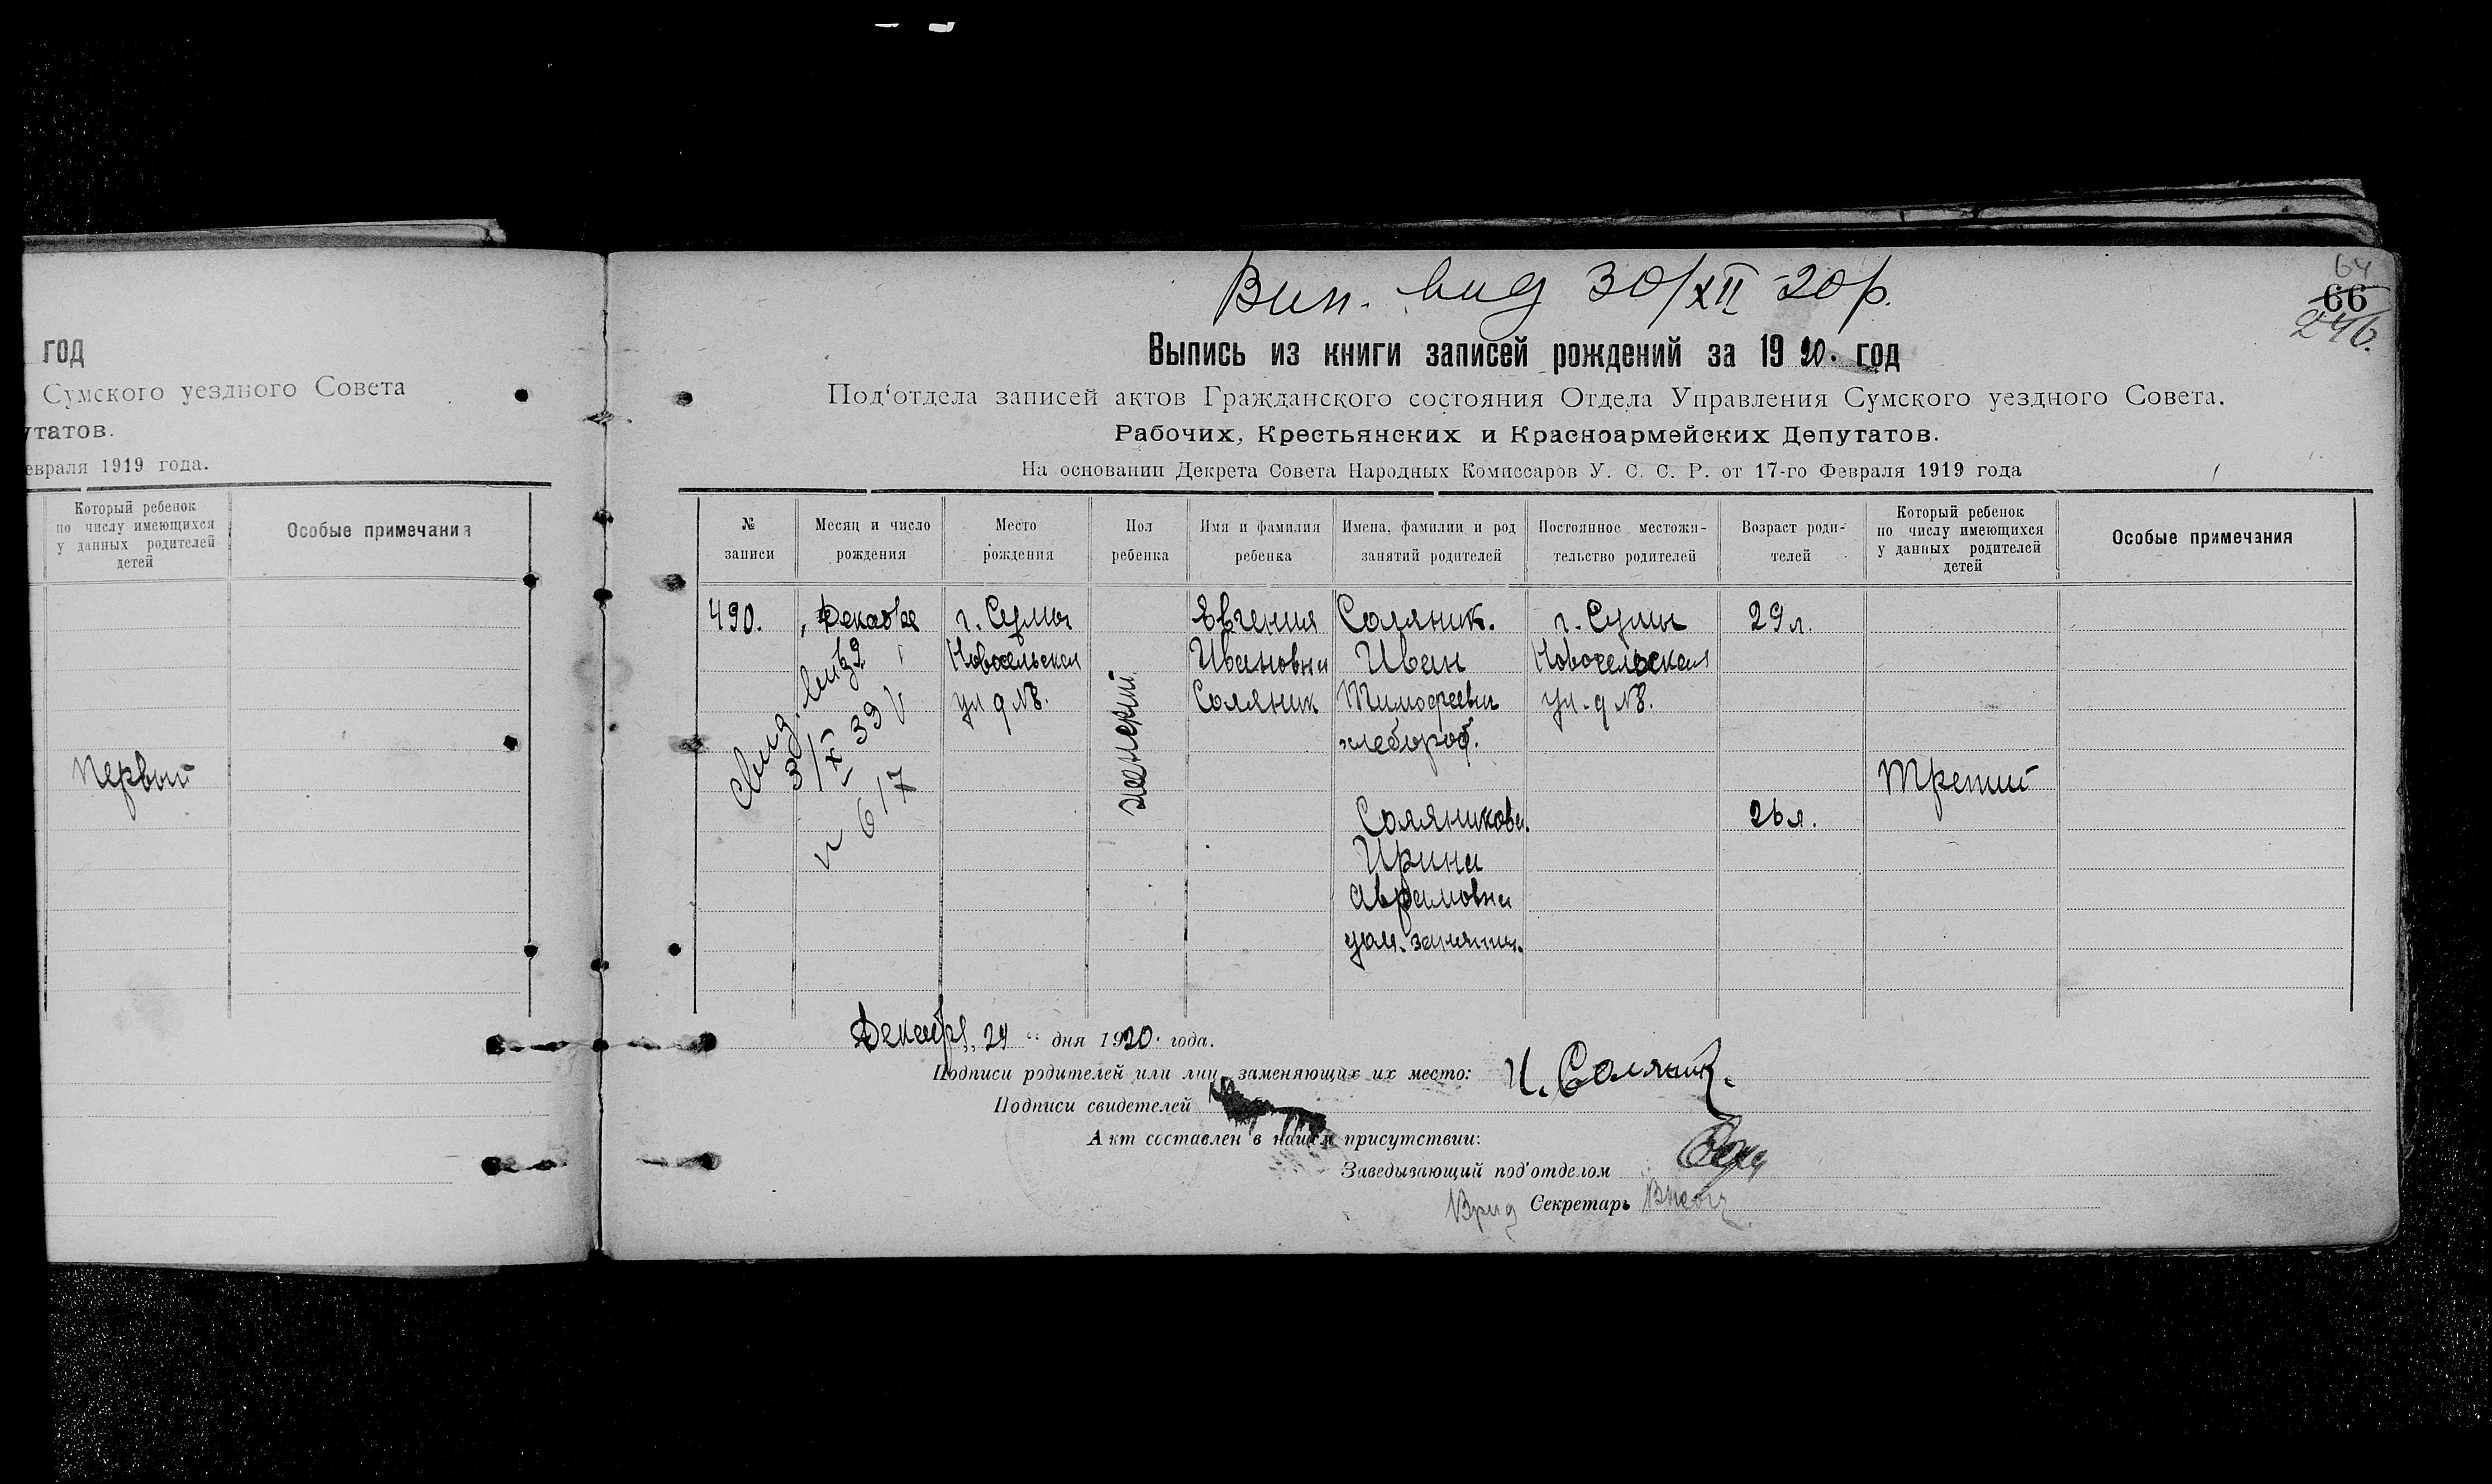 год
Сумского уездного Совета
утатов.
евраля 1919 года.
Который ребенок
по числу имеющихся
у данных родителей
детей
Особые примечания
первый
Вип. вид 30/XII 20 р.
64
66
246.
Выпись из книги записей рождений за 1920. год
Под'отдела записей актов Гражданского состояния Отдела Управления Сумского уездного Совета.
Рабочих, Крестьянских и Красноармейских Депутатов.
На основании Декрета Совета Народных Комиссаров У. С. С. Р. от 17-го Февраля 1919 года
№ записи
Месяц и число рождения
Место рождения
Пол ребенка
Имя и фамилия ребенка
Имена, фамилии и род занятий родителей
Постоянное местожительство родителей
Возраст родителей
Который ребенок по числу имеющихся у данных родителей детей
Особые примечания
490.
Декабре
г. Сумы
Новосельская
ул д №8.
женский
Евгения
Ивановна
Соляник
Соляник.
Иван
Тимофеевич
хлебороб.
Соляникова.
Ирина
Аврамовна
дом. занятия.
г. Сумы
Новосельская
ул. д №8.
29 л.
26 л.
Третий
3/X 39
№ 617
Декабря, 24 “ дня 1920. года.
Подписи родителей или лиц, заменяющих их место: И. Соляник.
Подписи свидетелей
Акт составлен в нашем присутствии:
Заведывающий под'отделом
Врид Секретарь